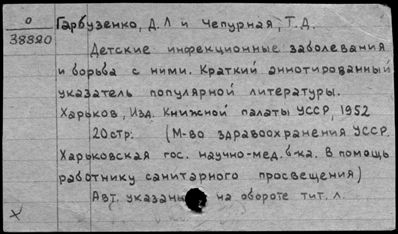 0
38820
Гарбузенко, Д. Л и Чепурная, Т. Д.
Детские инфекционные заболевания
и борьба с ними. Краткий аннотированный
указатель популярной литературы.
Харьков, Изд. Книжной палаты УССР, 1952
20стр. (М-во здравоохранения УССР.
Харьковская гос. научно-мед. б-ка. В помощь
работнику санитарного просвещения)
Авт. указаны на обороте тит. л.